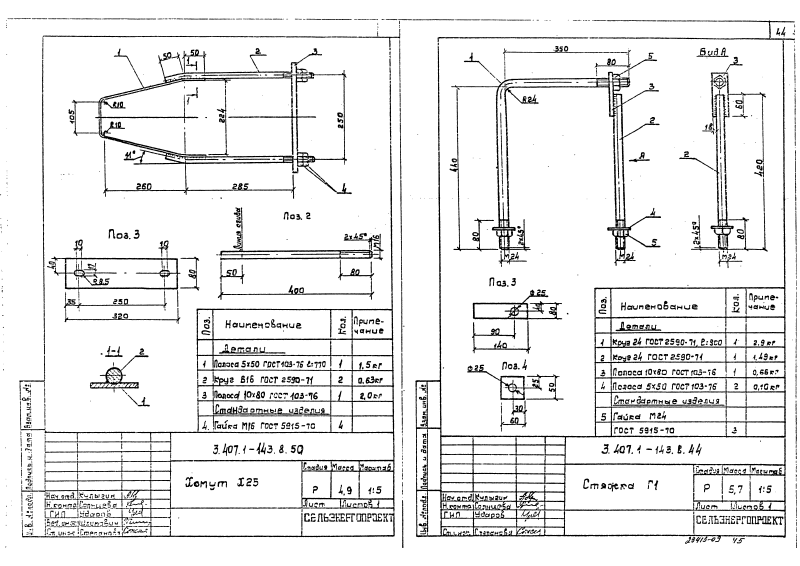 44
50 50
1 2 3
1
R10
105
224
250
R10
11°
1
4
260 285
Поз. 3
Поз. 2
Линия сгиба
2x45°
М16
50 80
400
19 19
40
17
R8.5
80
35 250
320
1-1
2
1
Поз. Наименование Кол. Примечание
Детали
1 Полоса 5x50 ГОСТ 103-76 ℓ=770 1 1,5кг
2 Круг В16 ГОСТ 2590-71 2 0,63кг
3 Полоса 10x80 ГОСТ 103-76 1 2,0кг
Стандартные изделия
4. Гайка М16 ГОСТ 5915-70 4
3.407.1-143.8.50
Хомут Х25
Стадия Масса Масштаб
Р 4,9 1:5
Лист Листов 1
СЕЛЬЭНЕРГОПРОЕКТ
Нач.отд. Кулыгин
Н.контр Солнцева
ГИП Ударов
Ст.инж. Степанова
Инв. №подл. Подпись и дата Взам.инв. №
350
1 80 5
R24
3
2
440
А
4
5
80
2x45°
М24 М24
Вид А
3
60
18
2
420
80
2x45°
М24
Поз. 3
ф25
40
80
90
140
Поз. 4
ф25
25
50
30
60
Поз. Наименование Кол. Примечание
Детали
1 Круг 24 ГОСТ 2590-71, ℓ=800 1 2,9кг
2 Круг 24 ГОСТ 2590-71 1 1,49кг
3 Полоса 10x80 ГОСТ 103-76 1 0,66кг
4 Полоса 5x50 ГОСТ 103-76 2 0,10кг
Стандартные изделия
5 Гайка М24
ГОСТ 5915-70 3
3.407.1-143.8.44
Стяжка Г1
Стадия Масса Масштаб
Р 5,7 1:5
Лист Листов 1
СЕЛЬЭНЕРГОПРОЕКТ
Нач.отд Кулыгин
Н.контр Солнцева
ГИП Ударов
Ст.инж. Степанова
Инв. №подл. Подпись и дата Взам.инв. №
29413-03 45